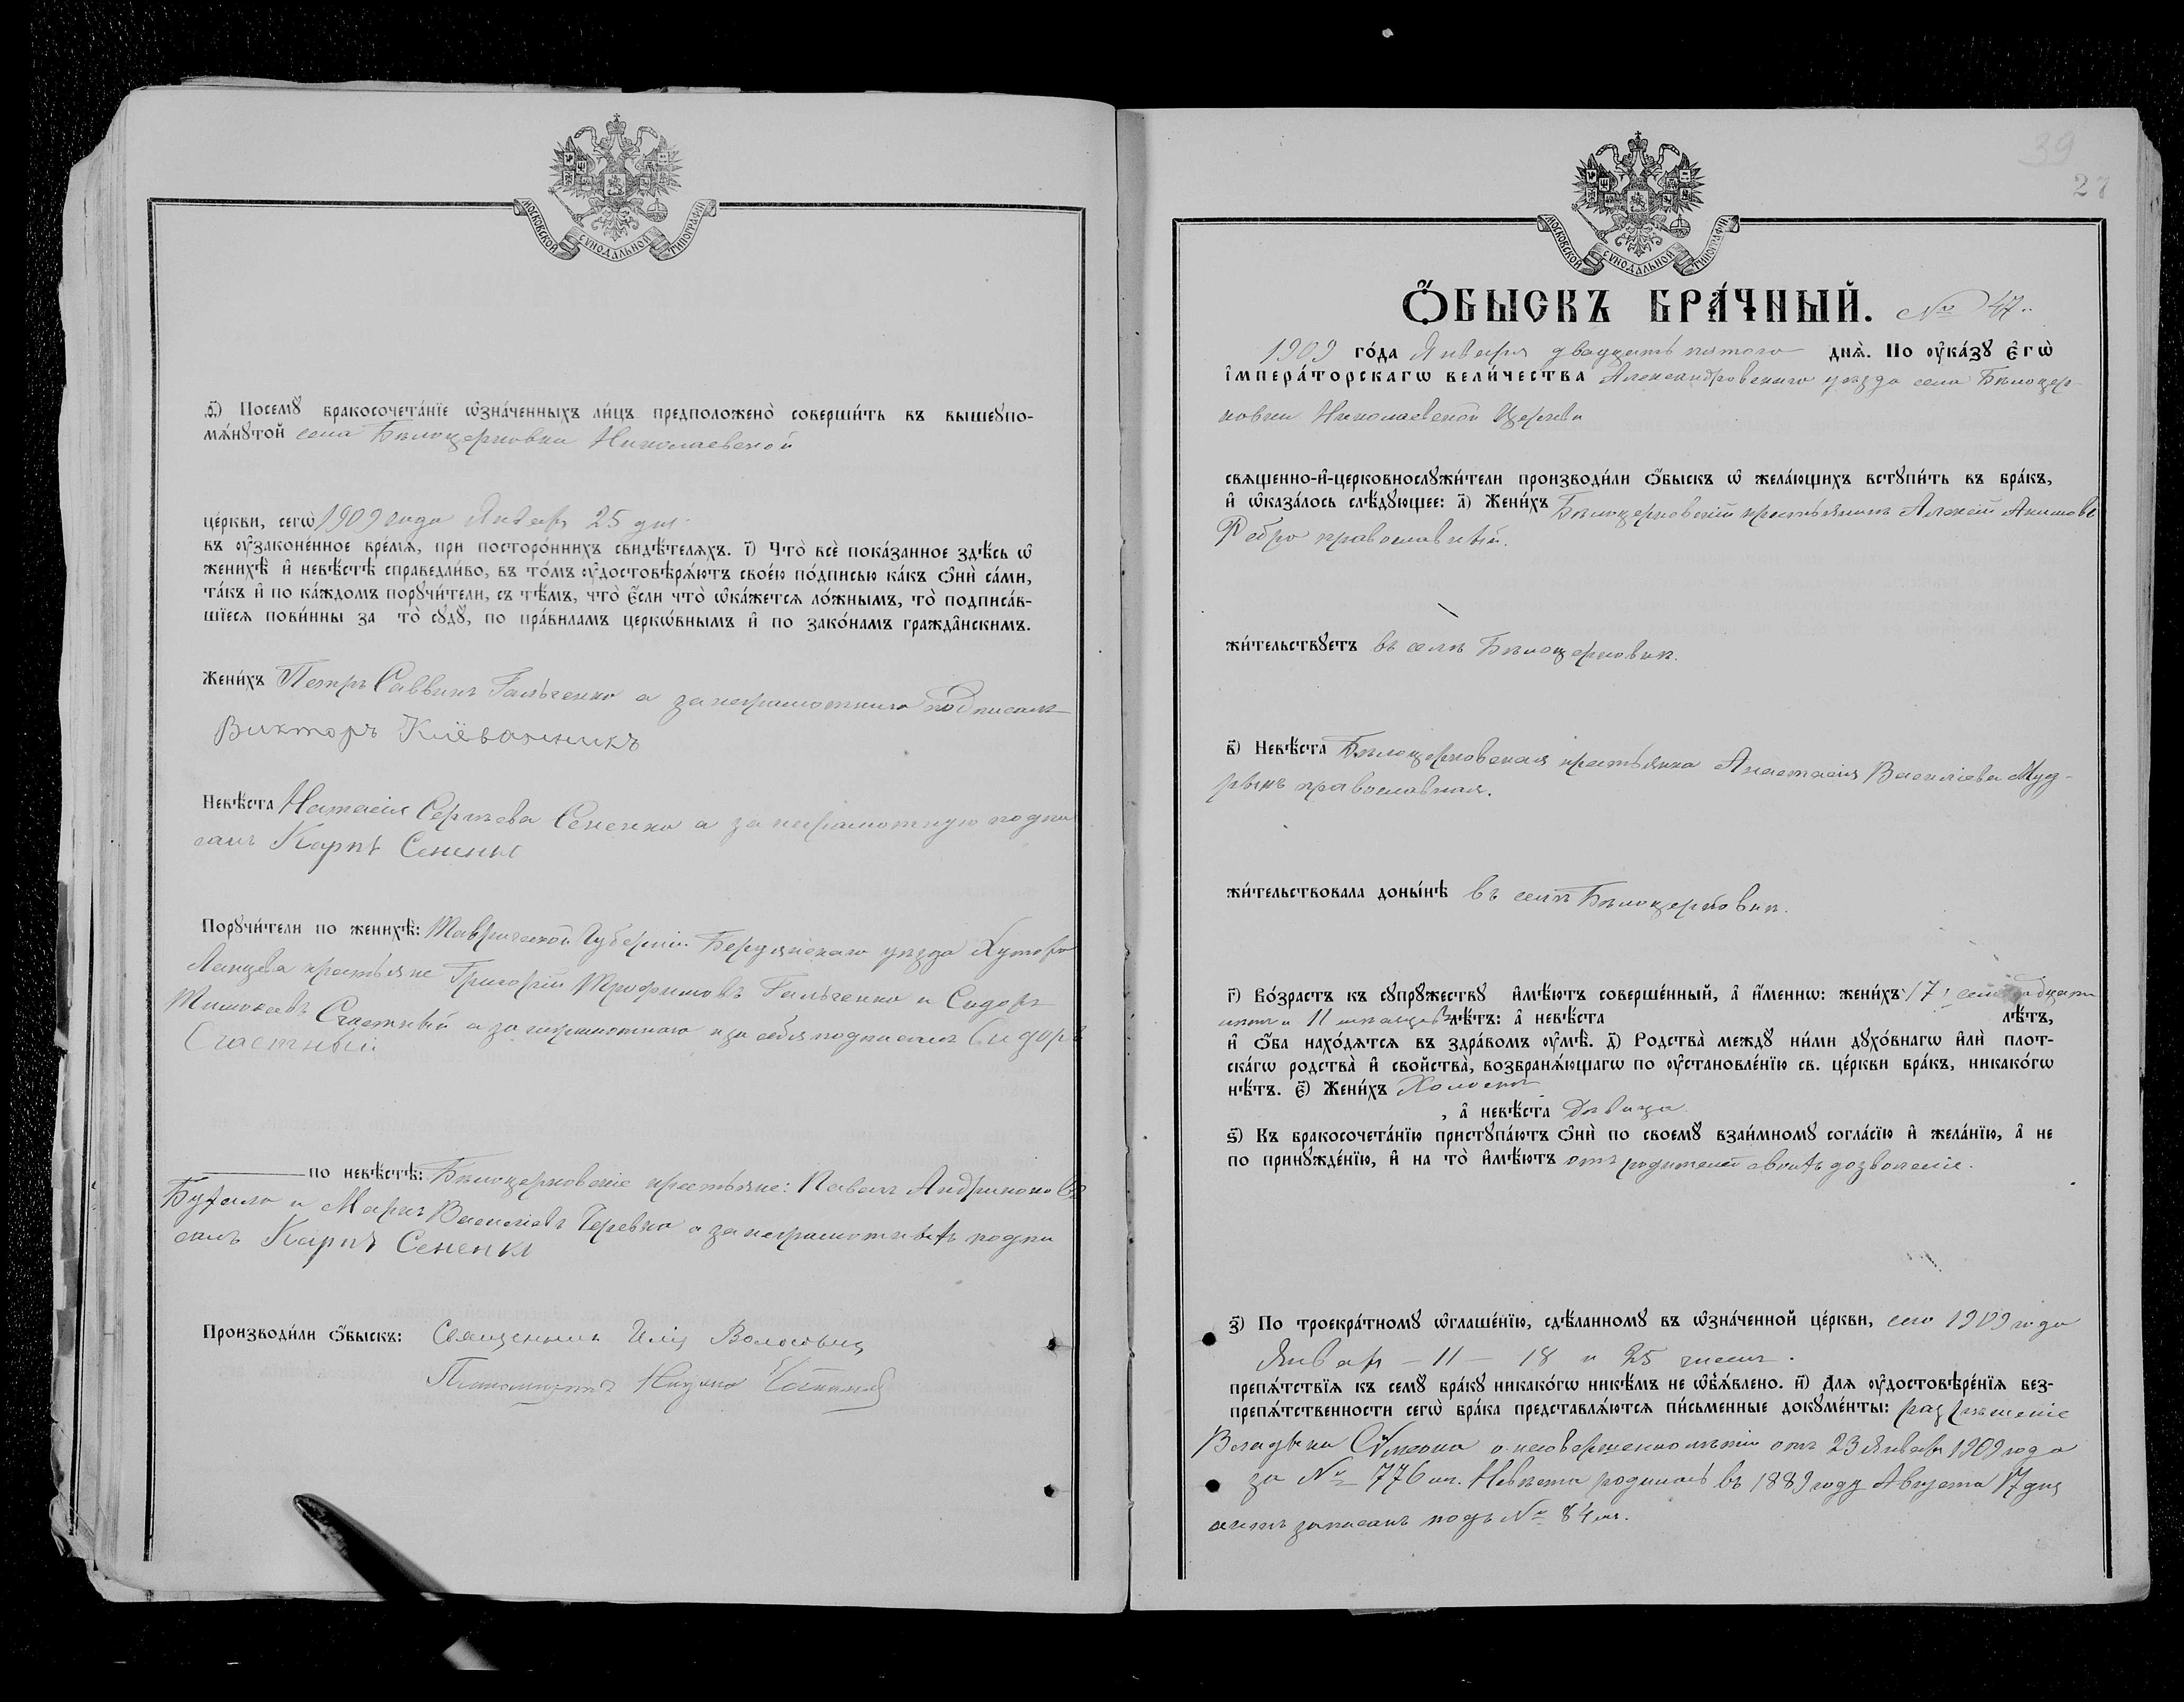 МОСКОВСКОЙ СѴНОДАЛЬНОЙ ТИПОГРАФІИ
ѳ҃) Посемꙋ̀ бракосочета́нїе ѡ҆зна́ченныхъ ли́цъ предположено̀ соверши́ть въ вышеꙋпо-
мѧ́нꙋтой села Бѣлоцерковки Николаевской
це́ркви, сегѡ̀ 1909 года Январ 25 дня
въ ᲂу҆законе́нное вре́мѧ, при посторо́ннихъ свидѣ́телѧхъ. і҃) Что̀ всѐ пока́занное здѣ́сь ѡ҆
женихѣ̀ и҆ невѣ́стѣ справедли́во, въ то́мъ ᲂу҆достовѣрѧ́ютъ свое́ю по́дписью ка́къ ѻ҆нѝ са́ми,
та́къ и҆ по ка́ждомъ порꙋчи́тели, съ тѣ́мъ, что̀ є҆́сли что̀ ѡ҆ка́жетсѧ ло́жнымъ, то̀ подписа́в-
шїесѧ пови́нны за то̀ сꙋдꙋ̀, по пра́виламъ церкѡ́внымъ и҆ по зако́намъ гражда̂нскимъ.
Жени́хъ Петръ Саввинъ Гальченко а за неграмотнаго подписалъ
Викторъ Кіёвонникъ
Невѣ́ста Натасія Сергѣева Сененко а за неграмотную подпи
салъ Карпъ Сененкo
Порꙋчи́тели по женихѣ̀: Таврической Губерніи Бердянскаго уѣзда Хутора
крестьяне Григорій Трофимовъ Гальченко и Сидоръ
Счастный а за неграмотнаго и за себя подписался Сидоръ
Счастный
по невѣ́стѣ: Бѣлоцерковскіе крестьяне: Павелъ Андрионовъ
и Марко Василіевъ Черевко а за неграмотныхъ подпи
салъ Карпъ Сененко
Производи́ли ѻ҆́быскъ: Священникъ Илія Волосовиц
39
27
МОСКОВСКОЙ СѴНОДАЛЬНОЙ ТИПОГРАФІИ
Ѻ҆́БЫСКЪ БРА́ЧНЫЙ. № 47.
1909 го́да Января двадцать пятого днѧ̀. По ᲂу҆ка́зꙋ є҆гѡ̀
і҆мпера́торскагѡ вели́чества Александровскаго уѣзда села Бѣлоцер-
ковки Николаевской Церкви
свѧщенно-и҆-церковнослꙋжи́тели производи́ли ѻ҆́быскъ ѡ҆ жела́ющихъ встꙋпи́ть въ бра́къ,
и҆ ѡ҆каза́лось слѣ́дꙋющее: а҃) Жени́хъ Бѣлоцерковскій крестьянинъ Алексѣй Акимовъ
Федро православный.
жи́тельствꙋетъ въ селѣ Бѣлоцерковкѣ.
в҃) Невѣ́ста Бѣлоцерковская крестьянка Анастасія Василіева Муд-
рыкъ православная.
жи́тельствовала доны́нѣ въ селѣ Бѣлоцерковкѣ.
г҃) Во́зрастъ къ сꙋпрꙋ́жествꙋ и҆мѣ́ютъ соверше́нный, а҆ и҆́менно: жени́хъ 17, семнадцать
лѣтъ и 11 мѣсяцевъ лѣ́тъ: а҆ невѣ́ста лѣ́тъ,
и҆ ѻ҆́ба нахо́дѧтсѧ въ здра́вомъ ᲂу҆мѣ̀. д҃) Родства̀ междꙋ̀ ни́ми дꙋхо́внагѡ и҆лѝ плот-
ска́гѡ родства̀ и҆ сво́йства, возбранѧ́ющагѡ по ᲂу҆становле́нїю св. це́ркви бра́къ, никако́гѡ
нѣ́тъ. є҃) Жени́хъ Холостъ
, а҆ невѣ́ста Дѣвица
ѕ҃) Къ бракосочета́нїю пристꙋпа́ютъ ѻ҆нѝ по своемꙋ̀ взаи́мномꙋ согла́сїю и҆ жела́нїю, а҆ не
по принꙋжде́нїю, и҆ на то̀ и҆мѣ́ютъ отъ родителей своихъ дозволеніе.
з҃) По троекра́тномꙋ ѡ҆глаше́нїю, сдѣ́ланномꙋ въ ѡ҆зна́ченной це́ркви, сего 1909 года
Январ – 11 – 18 и 25 чиселъ.
препѧ́тствїѧ къ семꙋ̀ бра́кꙋ никако́гѡ никѣ́мъ не ѡ҆бъѧ́влено. и҃) Длѧ ᲂу҆достовѣре́нїѧ без-
препѧ́тственности сегѡ̀ бра́ка представлѧ́ютсѧ пи́сьменные докꙋме́нты: разрѣшеніе
Владыки Сѵмеона о несовершеннолѣтіи отъ 23 Января 1909 года
за № 776 м. Невѣста родилась въ 1889 году Августа 17 дня
актъ записанъ подъ № 84 м.